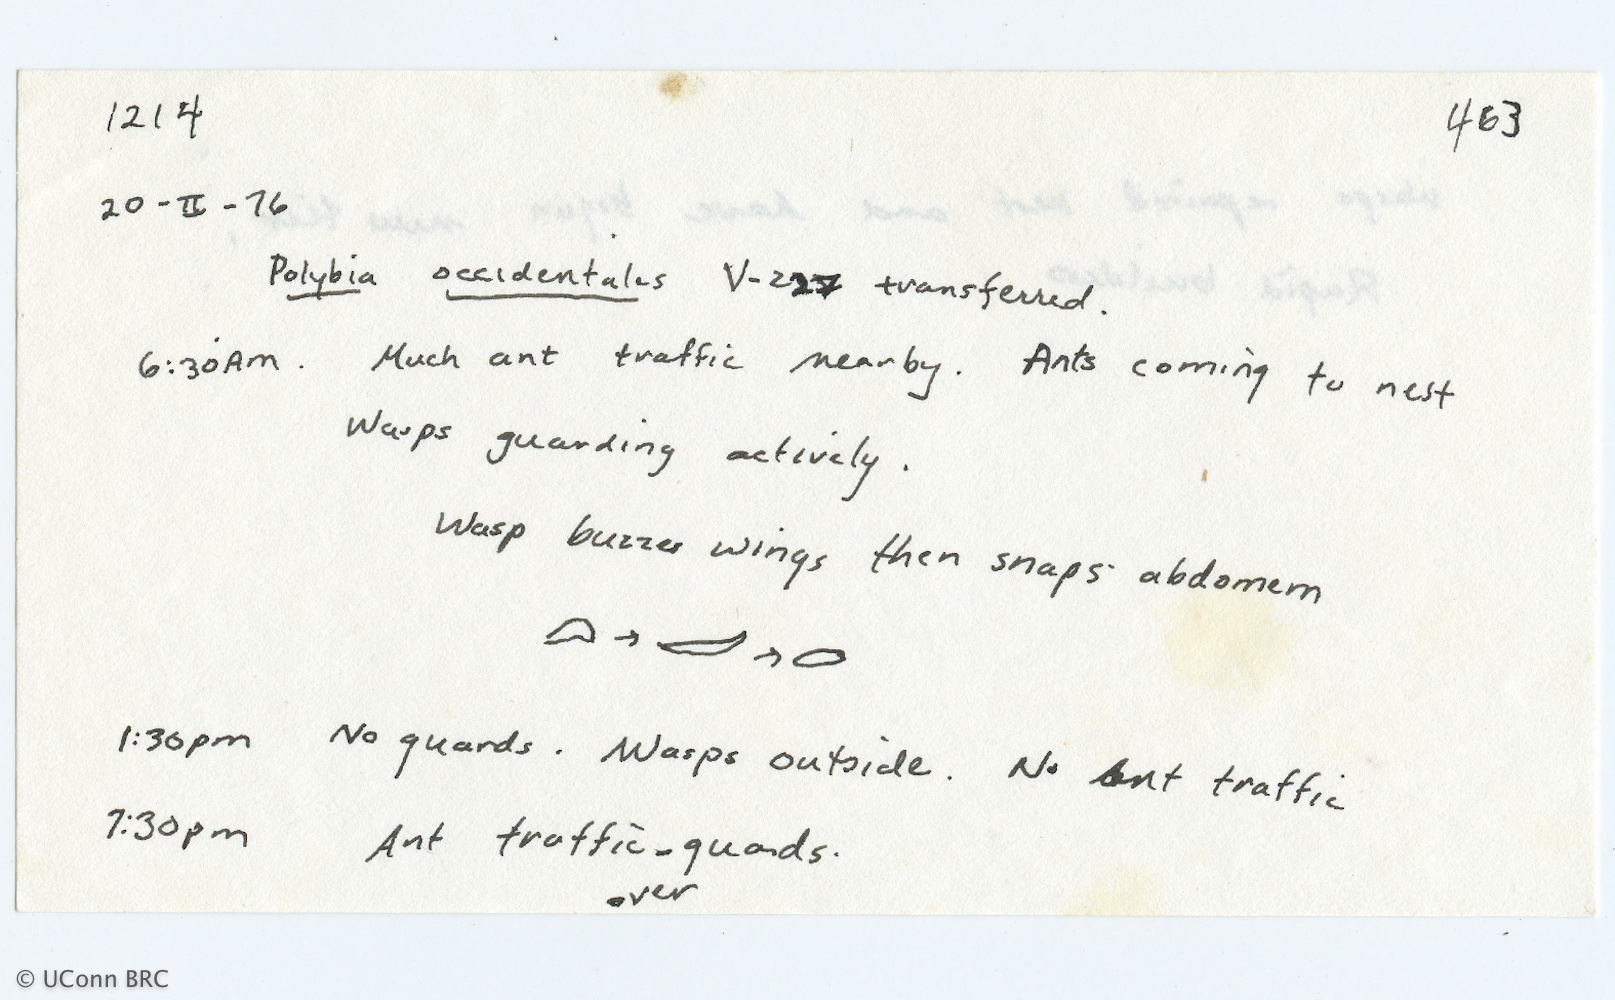 1214 463
20-II-76
Polybia occidentalis V-227 transferred.
6:30Am. Much ant traffic nearby. Ants coming to nest
Wasps guarding actively.
Wasp buzzes wings then snaps abdomem
→ →
1:30pm No guards. Wasps outside. No ant traffic
7:30pm Ant traffic-guards.
over
© UConn BRC